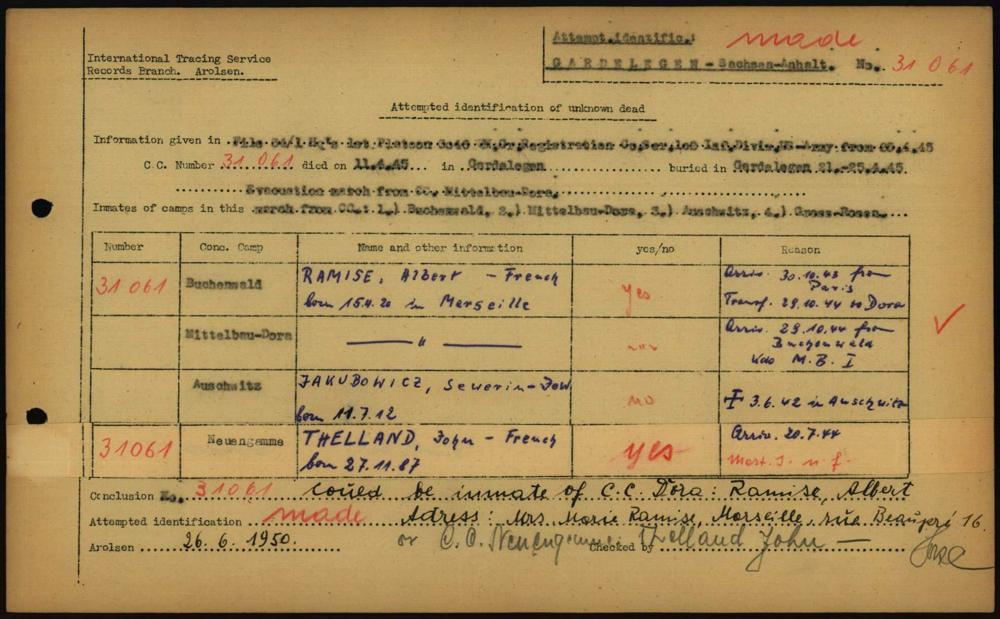 Attempt.identific.: made
International Tracing Service
Records Branch. Arolsen.
GARDELEGEN - Sachsen-Anhalt. No. 31 061
Attempted identification of unknown dead
Information given in File
C.C. Number 31.061 died on 11.4.45 in Gardelegen buried in Gardelegen 21.-25.4.45
Evacuation march from CC. Mittelbau-Dora,
Inmates of camps in this march from CC.: 1.) Buchenwald, 2.) Mittelbau-Dora, 3.) Auschwitz, 4.) Gross-Rosen
Number Conc. Camp Name and other information yes/no Reason
31 061 Buchenwald RAMISE, Albert - French born 15.4.20 in Merseille yes Arriv. 30.10.43 from Paris Transf. 29.10.44 to Dora
Mittelbau-Dora — " — Arriv. 29.10.44 from Buchenwald Kdo M.B. I
Auschwitz JAKUBOWICZ, Sewerin-Jew. born 11.7.12 no 3.6.42 in Auschwitz
31061 Neuengamme THELLAND, John - French born 27.11.87 yes Arriv. 20.7.44
Conclusion No. 31061 could be inmate of C.C. Dora: Ramise, Albert
Attempted identification made Adress: Mrs. Marie Ramise, Marseille, rue 16.
Arolsen 26.6.1950. or C.C. Neuengamme Checked by Thelland John —